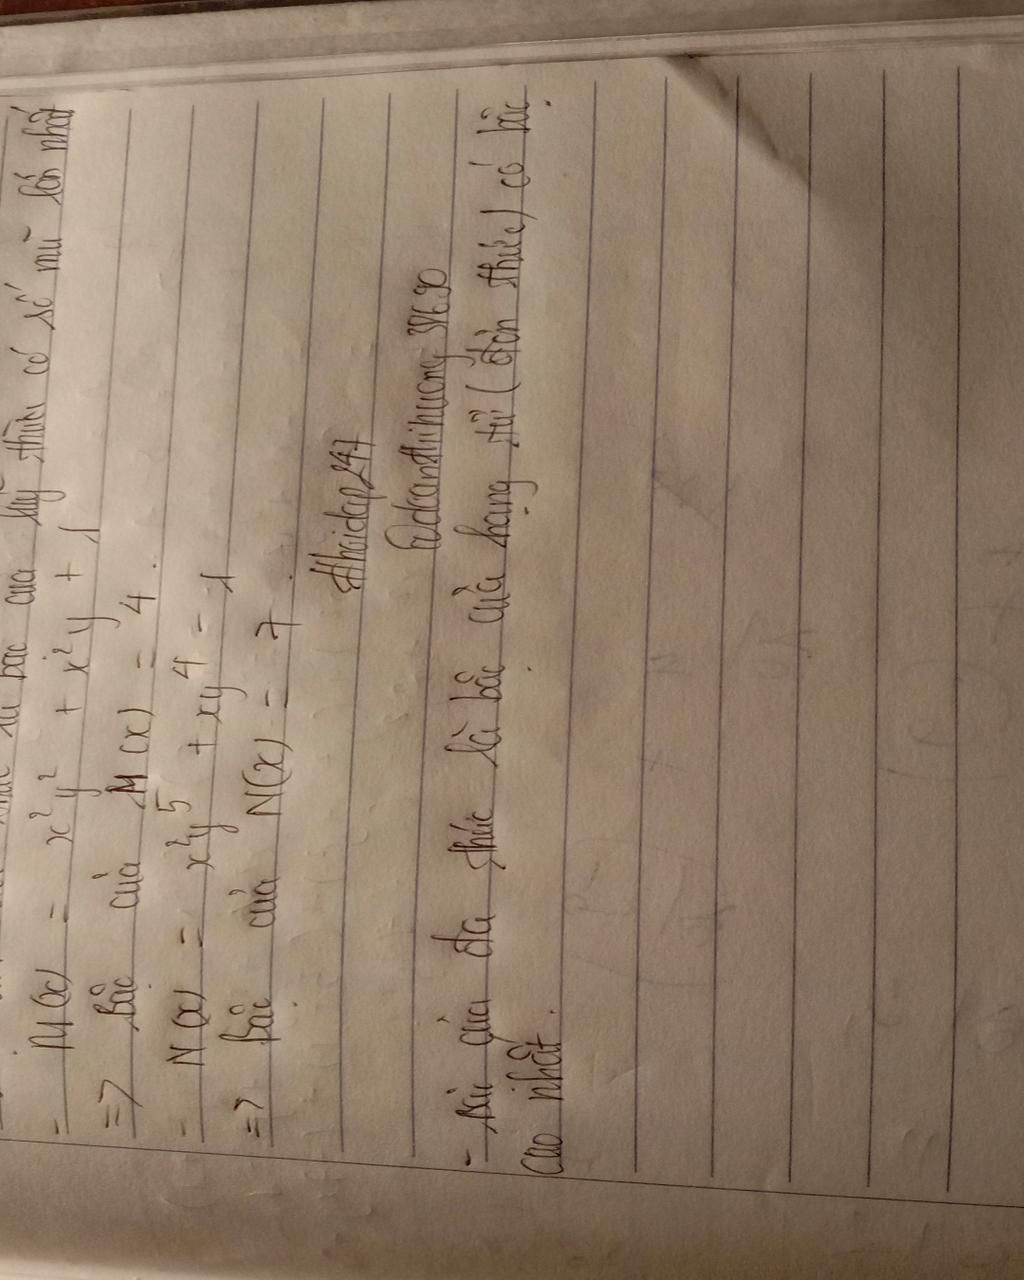 bậc của lũy thừa có số mũ lớn nhất
- M(x) = x²y² + x²y + 1
=> Bậc của M(x) = 4.
- N(x) = x²y⁵ + xy⁴ - 1
=> Bậc của N(x) = 7.
hoidap247
- Bậc của đa thức là bậc của hạng tử (đơn thức) có bậc
cao nhất.